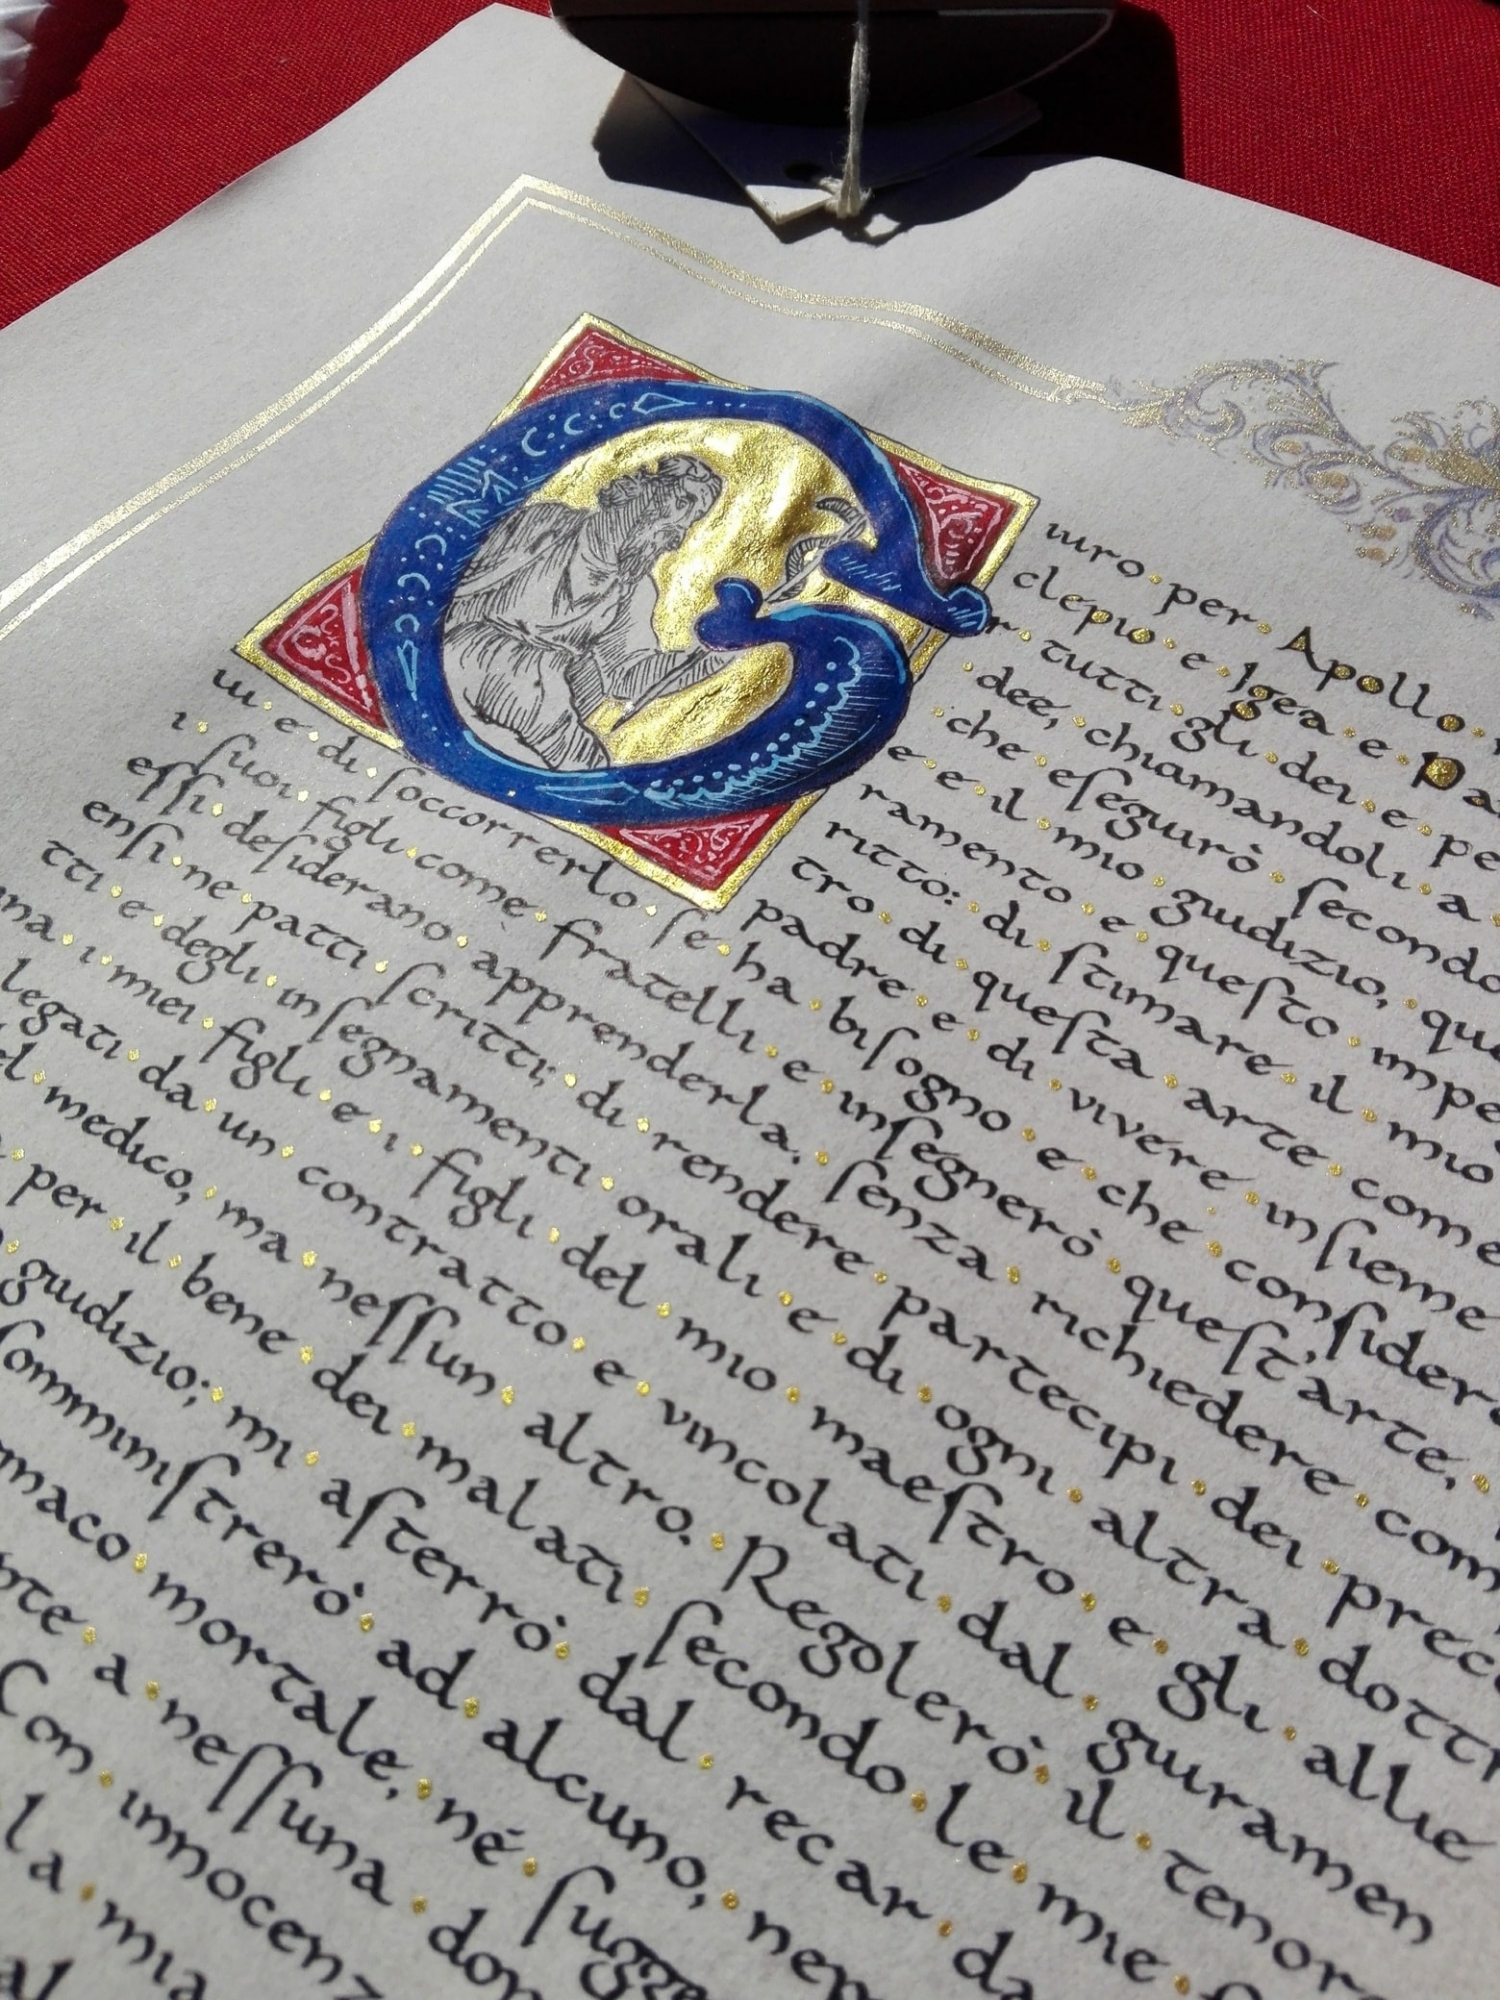 Giuro per Apollo
clepio e Igea e Pa
r tutti gli dei e pe
dee, chiamandoli a
che eseguirò secondo
e e il mio giudizio, que
ramento e questo impe
ritto: di stimare il mio
tro di questa arte come
padre e di vivere insieme
m e di soccorrerlo se ha bisogno e che consider
i suoi figli come fratelli e insegnerò quest'arte,
essi desiderano apprenderla; senza richiedere com
ensi ne patti scritti; di rendere partecipi dei prece
tti e degli insegnamenti orali e di ogni altra dottri
na i miei figli e i figli del mio maestro e gli allie
legati da un contratto e vincolati dal giuramen
el medico, ma nessun altro. Regolerò il tenor
per il bene dei malati secondo le mie f
giudizio; mi asterrò dal recar da
somministrerò ad alcuno, nep
maco mortale, né sugge
nte a nessuna don
Con innocenz
la mia
al